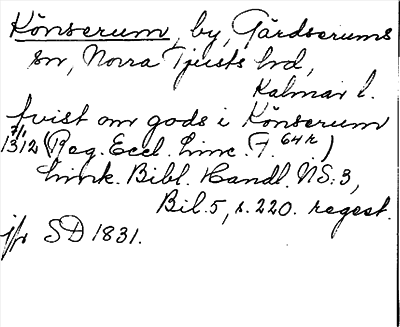 Könserum, by, Gärdserums
sn, Norra Tjusts hd,
Kalmar l.
tvist om gods i Könserum
7/1 1312 (Reg. Eccl. Linc. F. 64 r)
Link. Bibl. Handl. NS:3,
Bil. 5, s. 220. regest.
jfr SD 1831.